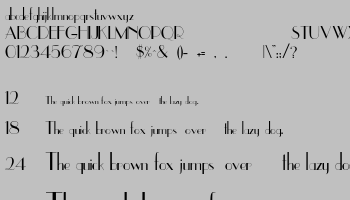 abcdefghijklmnopqrstuvwxyz
ABCDEFGHIJKLMNOPQR STUVW
0123456789 ! $%^& () += . , |\~:;/?
12 The quick brown fox jumps over the lazy dog.
18 The quick brown fox jumps over the lazy dog.
24 The quick brown fox jumps over the lazy do